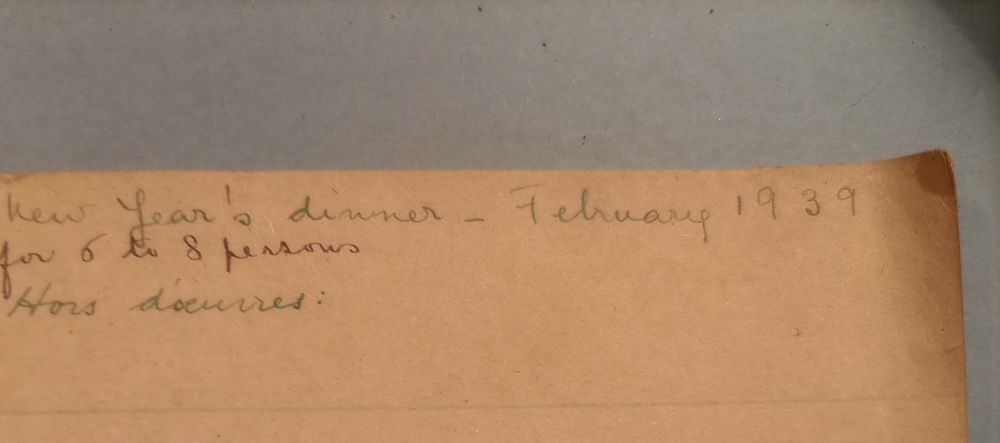 New Year's dinner - February 1939
for 6 to 8 persons
Hors d'oeuvres: